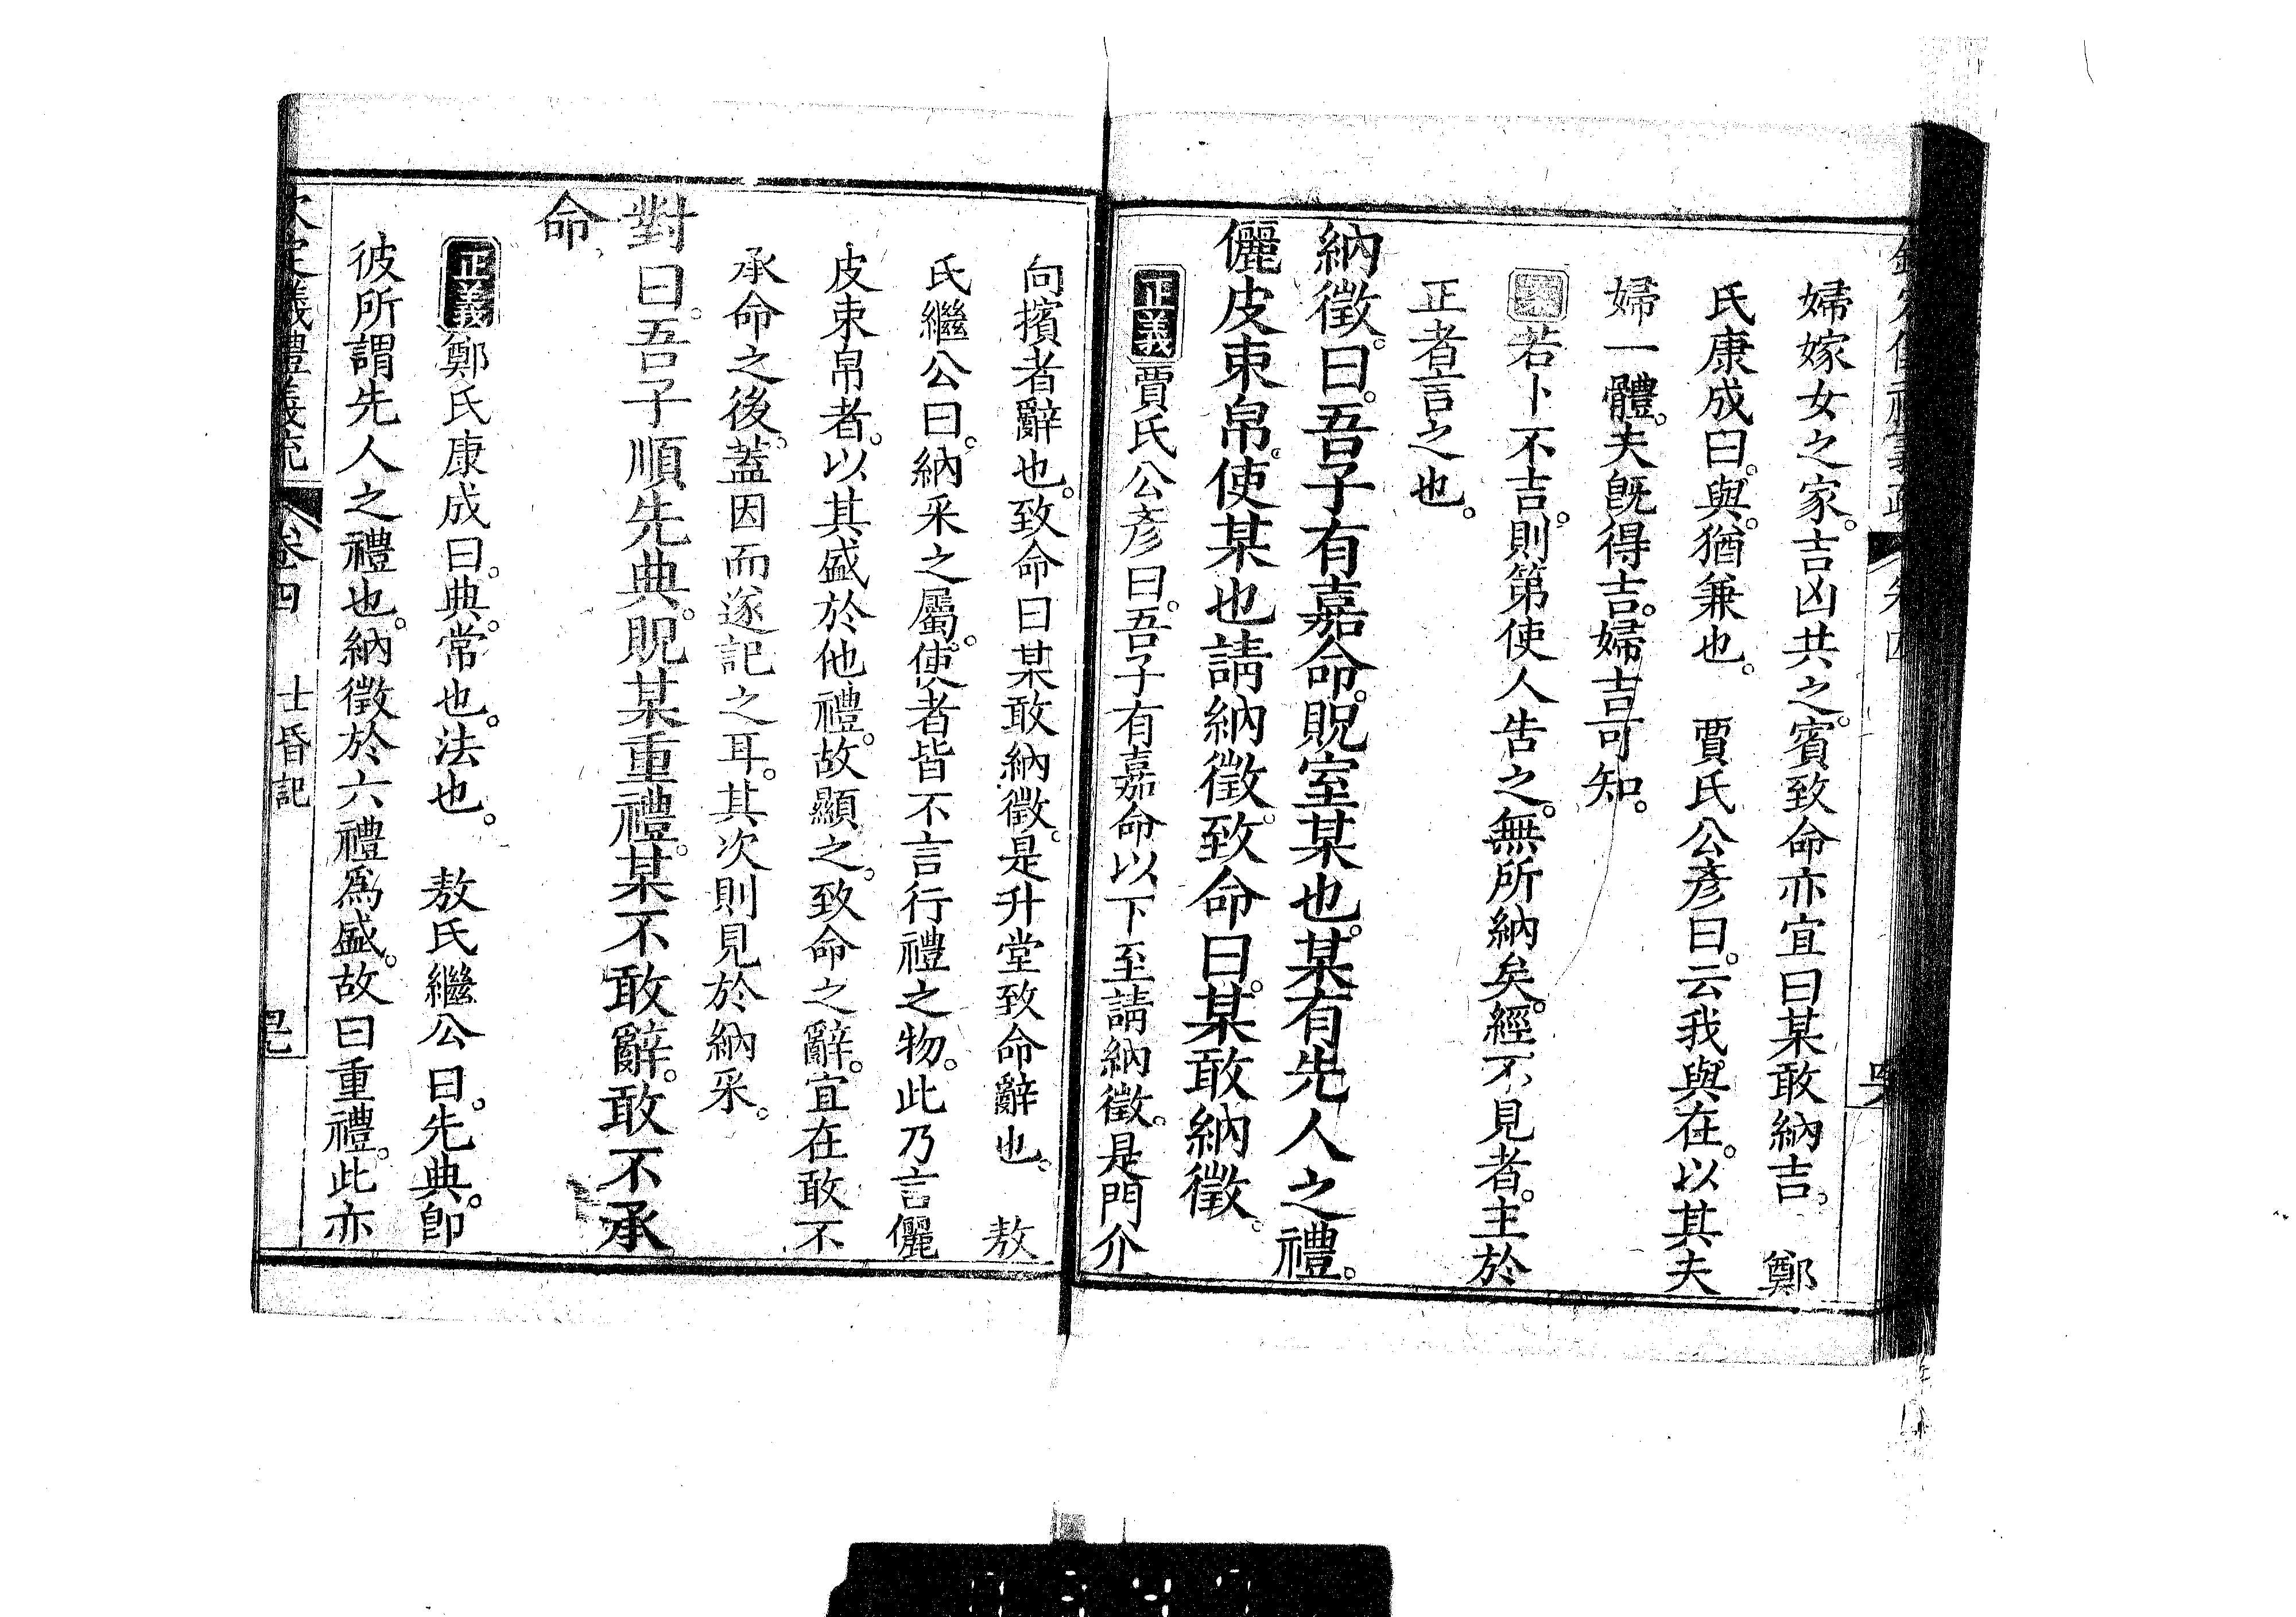 欽定儀禮義疏　卷四
婦嫁女之家。吉凶共之。賓致命亦宜曰某敢納吉。　鄭
氏康成曰。與。猶兼也。　賈氏公彥曰。云我與在。以其夫
婦一體。夫旣得吉。婦吉可知。
案若卜不吉。則第使人告之。無所納矣。經不見者。主於
正者言之也。
納徵。曰。吾子有嘉命。貺室某也。某有先人之禮。
儷皮束帛。使某也請納徵。致命曰。某敢納徵。
正義賈氏公彥曰。吾子有嘉命以下至請納徵。是門介
向擯者辭也。致命曰某敢納徵。是升堂致命辭也。　敖
氏繼公曰。納采之屬。使者皆不言行禮之物。此乃言儷
皮束帛者。以其盛於他禮。故顯之。致命之辭。宜在敢不
承命之後。蓋因而遂記之耳。其次則見於納采。
對曰。吾子順先典。貺某重禮。某不敢辭。敢不承
命
正義鄭氏康成曰。典。常也。法也。　敖氏繼公曰。先典。卽
彼所謂先人之禮也。納徵於六禮爲盛。故曰重禮。此亦
欽定儀禮義疏　卷四　士昏記